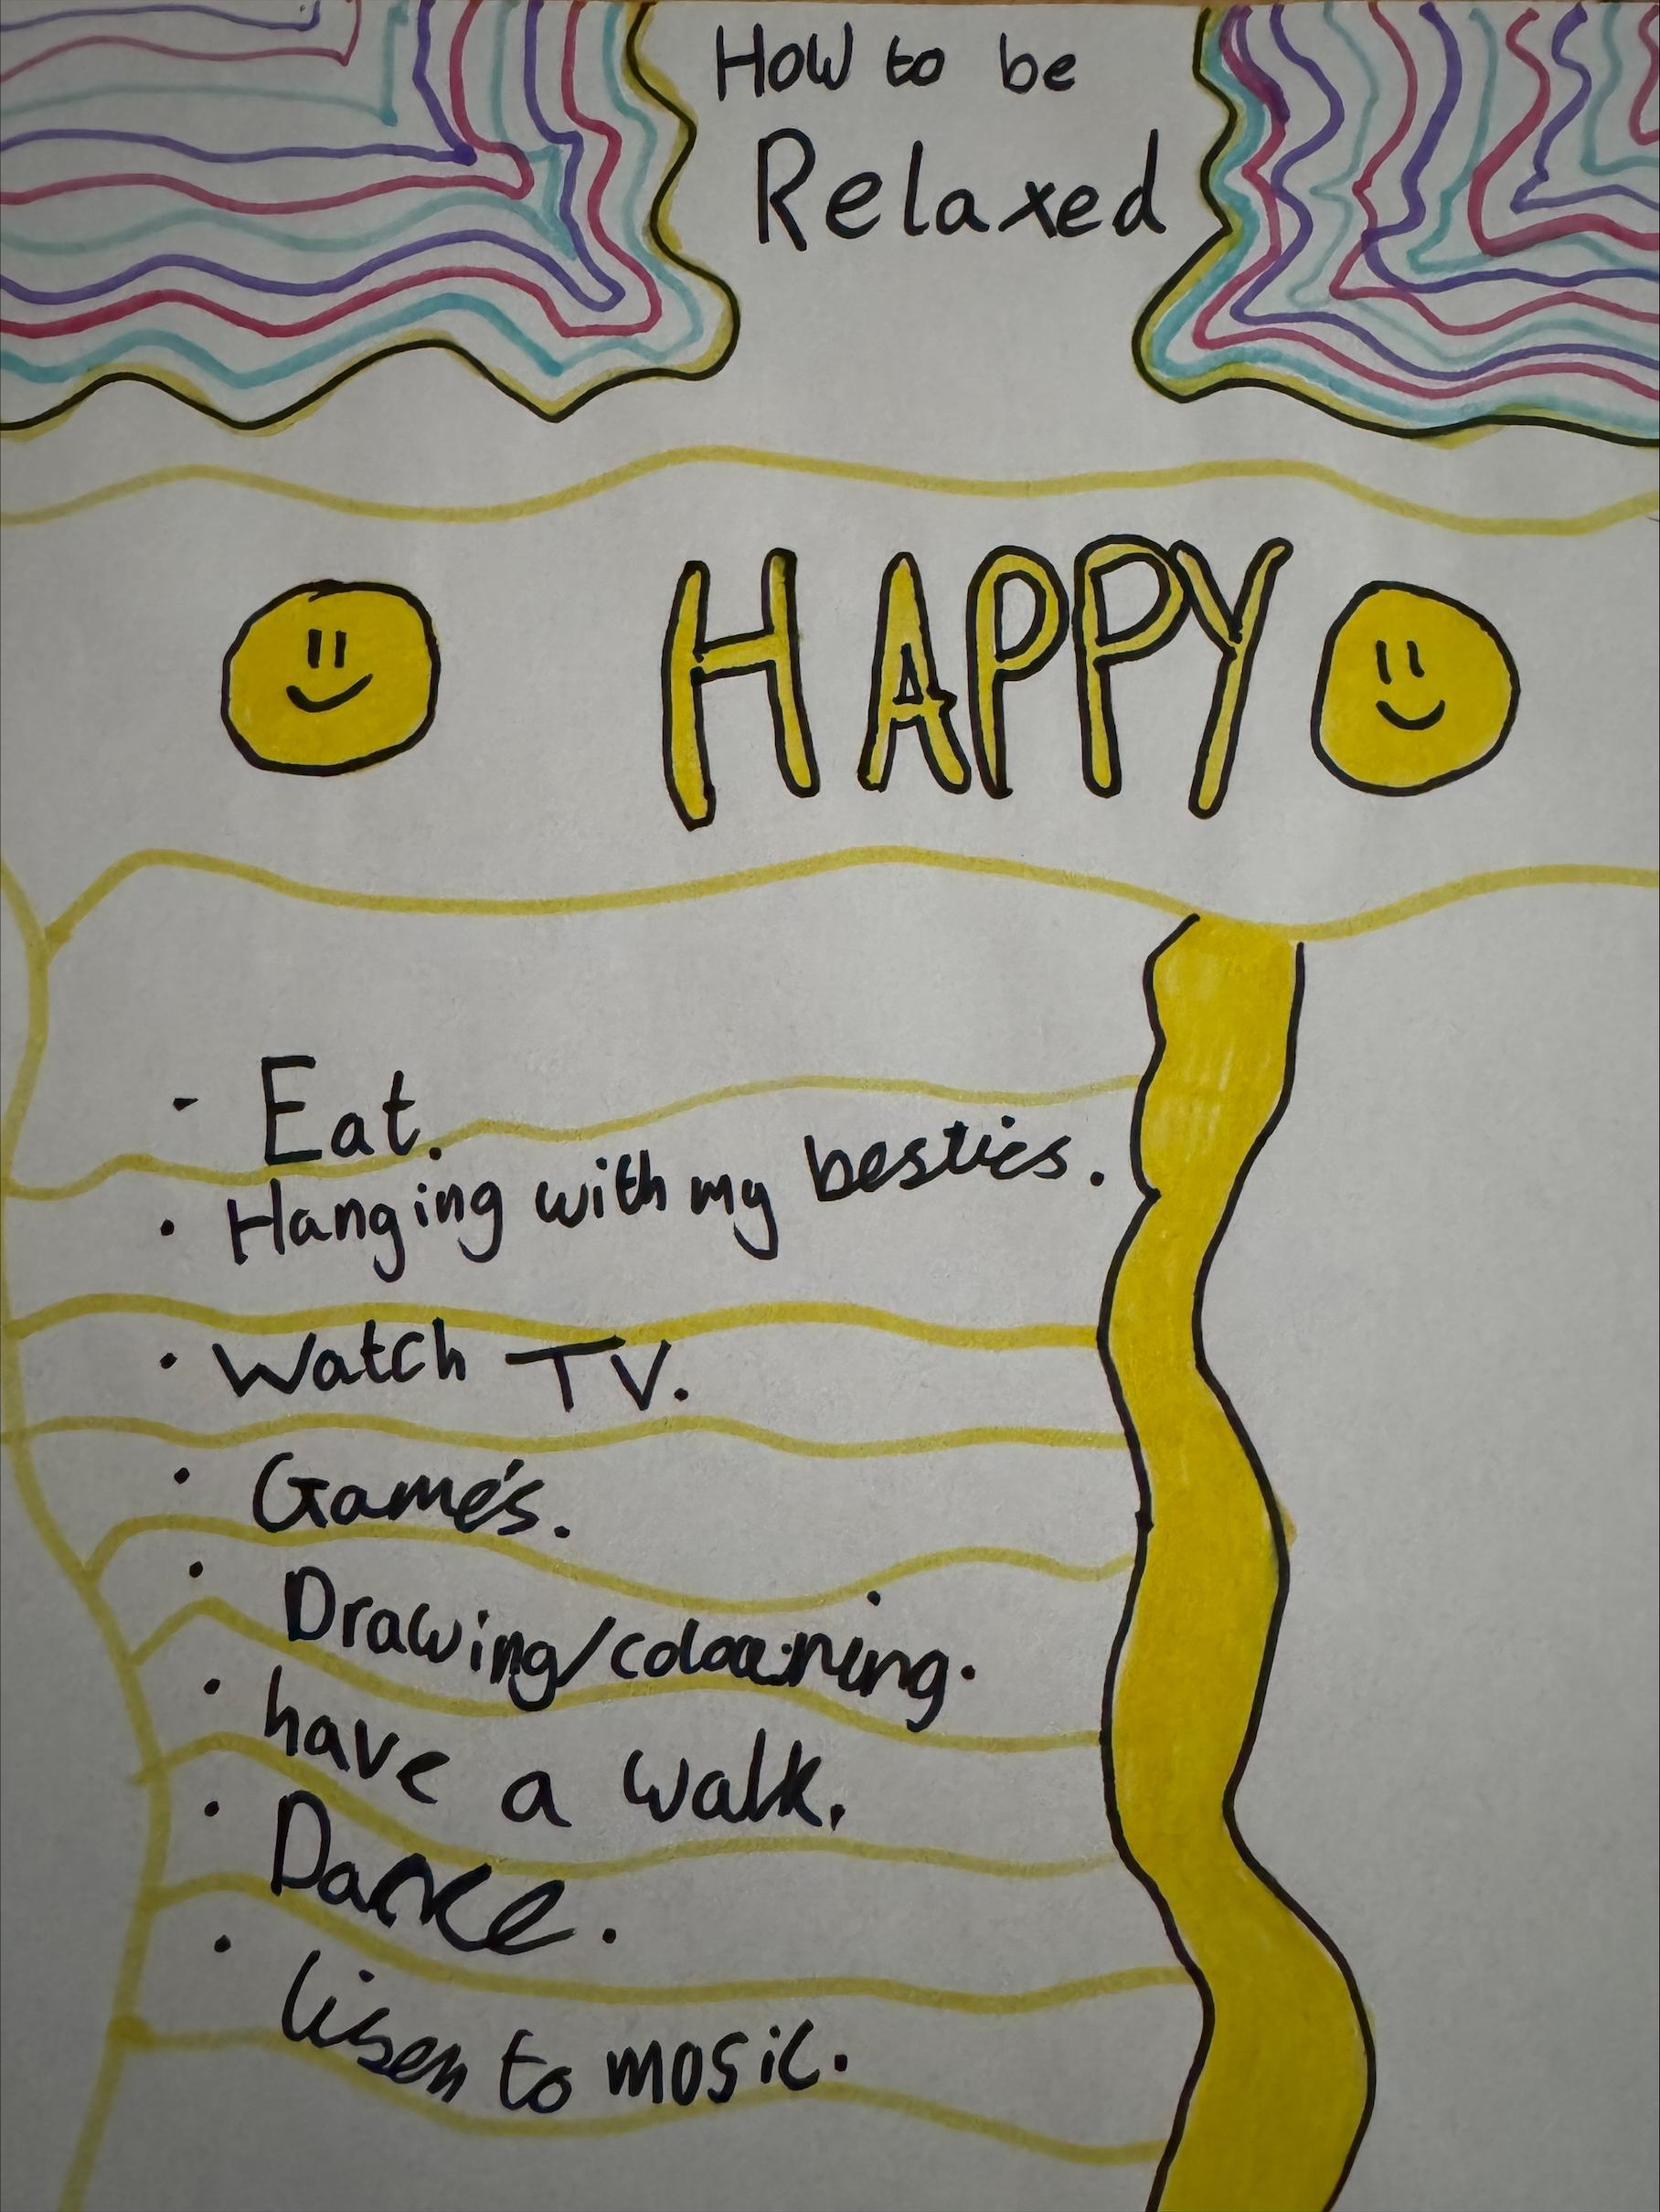 How to be
Relaxed
HAPPY
- Eat.
• Hanging with my besties.
• Watch TV.
• Game's.
• Drawing/colouring.
• have a walk.
• Dance.
• lisen to mosic.